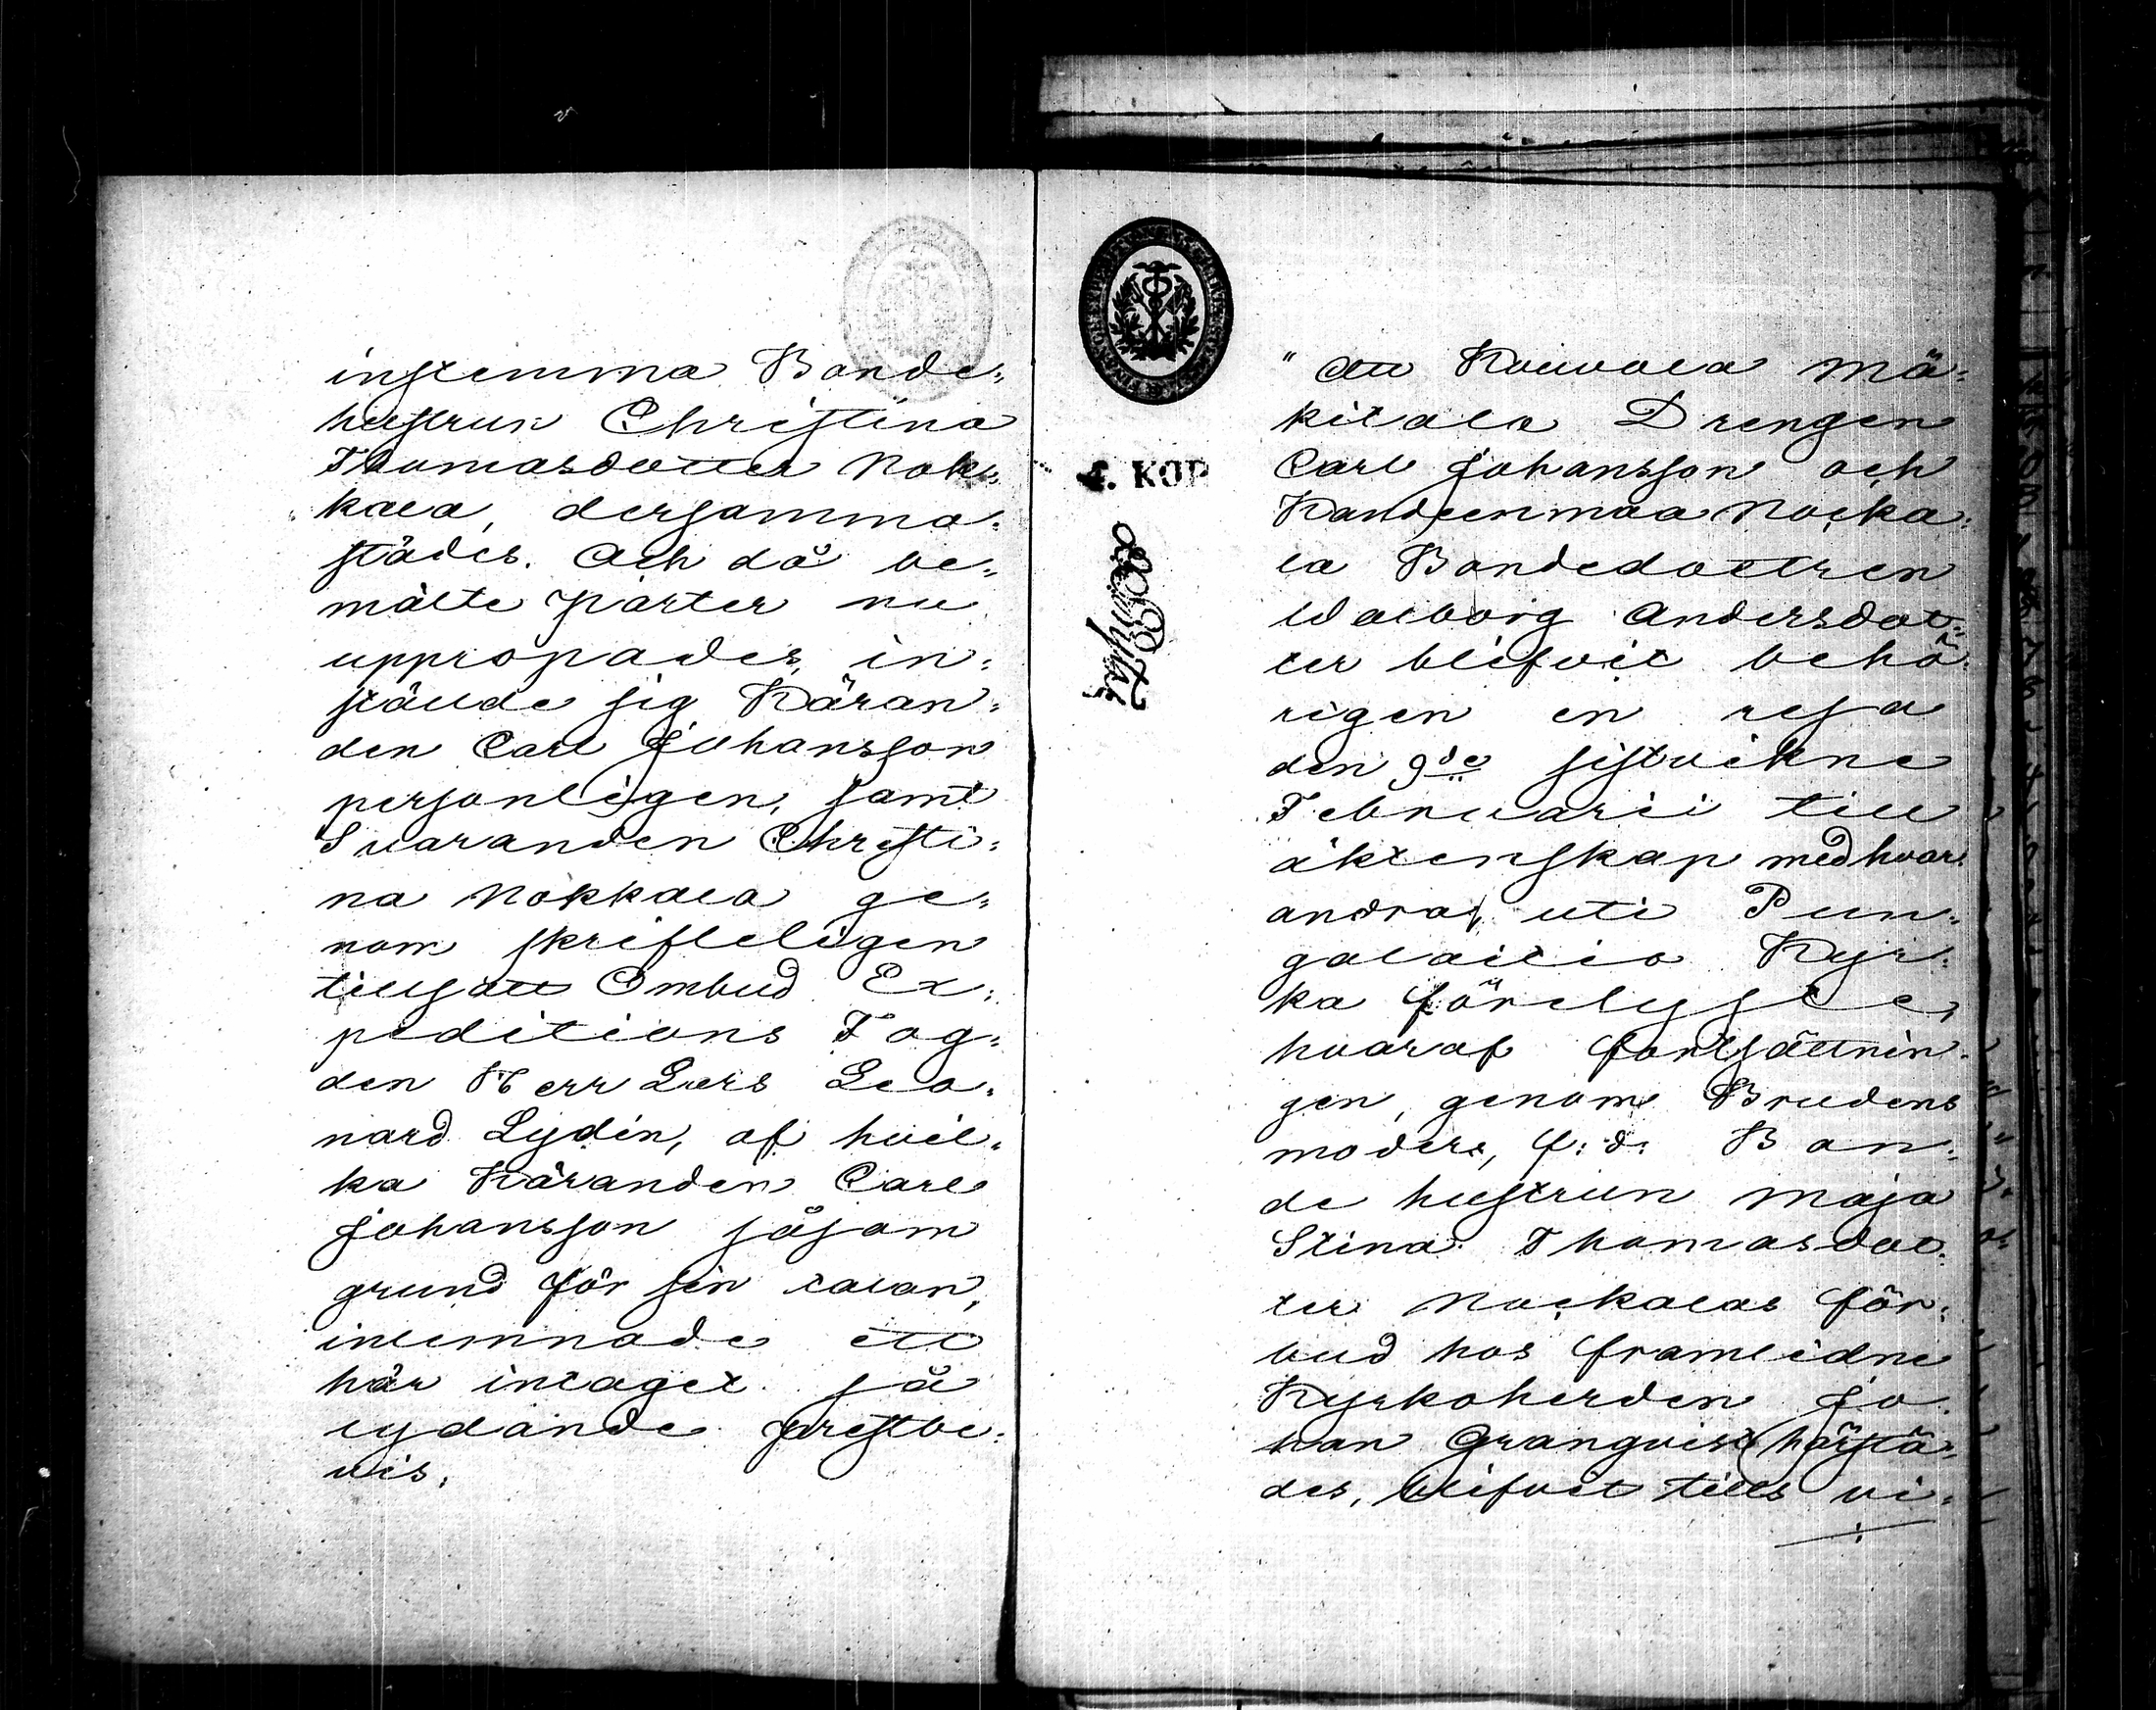 instemma Bonde=
hustrun Christina
Thomasdotter Nok=
kala, dersamma=
städes. Och då be=
mälte parter nu
uppropades, in=
stälde sig Käran=
den Carl Johansson
personligen, samt
Svaranden Christi=
na Nokkala ge=
nom skrifteligen
tillsatt Ombud Ex=
peditions Fog=
den Herr Lars Leo=
nard Lydén, af hvil=
ka Käranden Carl
Johansson såsom
grund för sin talan,
inlemnade ett
här intaget så
lydande prestbe=
vis.
" Att Kouvola Mä=
kitalo Drengen
Carl Johansson och
Kandeenmaa Nocka=
la Bondedottren
Walborg Andersdot=
ter blifvit behö=
rigen en resa
den 9de sistvikne
Februarii till
äktenskap med hvar=
andra, uti Pun=
galaitio Kyr=
ka förelyste,
hvaraf fortsättnin=
gen, genom Brudens
moders, f: d: Bon=
de hustrun Maja
Stina Thomasdot=
ter Nockalas för=
bud hos framlidne
Kyrkoherden Jo=
han Granqvist härstä=
des, blifvit tills vi=
4. KOP